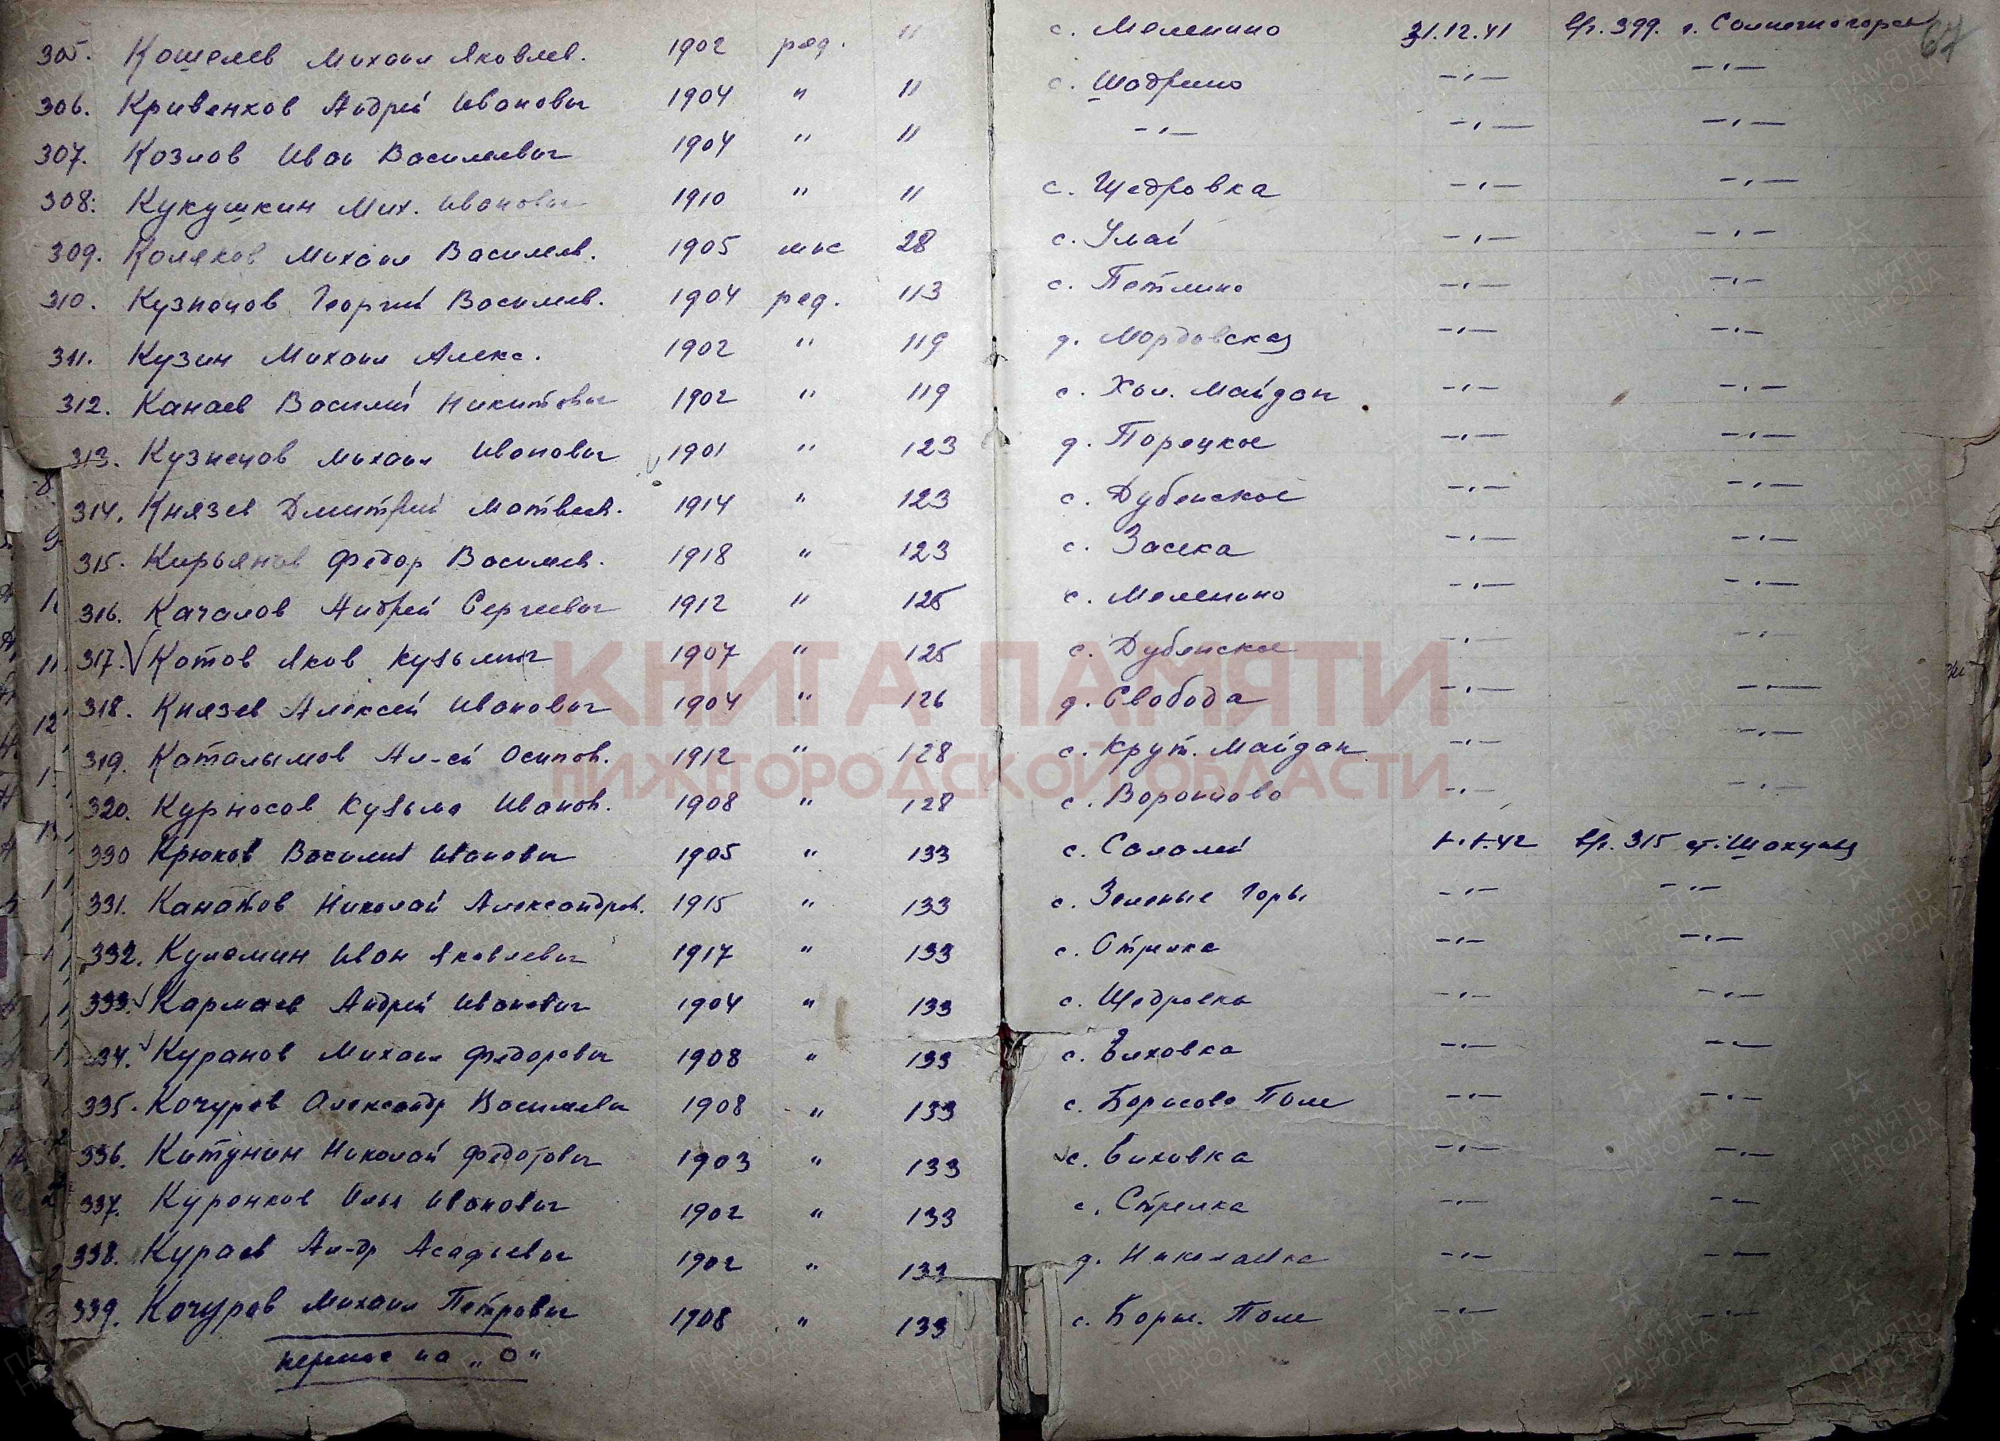 67
305. Кошелев Михаил Яковлев. 1902 ряд. " с. Меленино 31.12.41 вр. 399. г. Солнечногорск
306. Кривенков Андрей Иванович 1904 " " с. Шадрино -"- -"-
307. Козлов Иван Василевич 1904 " " -"- -"- -"-
308. Кукушкин Мих. Иванович 1910 " " с. Щедровка -"- -"-
309. Коляков Михаил Василев. 1905 28 с. Умай -"- -"-
310. Кузнецов Георгий Василев. 1904 ряд. 113 с. Петлино -"- -"-
311. Кузин Михаил Алекс. 1902 " 119 д. Мордовская -"- -"-
312. Канаев Василий Никитович 1902 " 119 с. Хол. Майдан -"- -"-
313. Кузнецов Михаил Иванович 1901 " 123 д. Порецкое -"- -"-
314. Князев Дмитрий Матвеев. 1914 " 123 с. Дубенское -"- -"-
315. Кирьянов Федор Василев. 1918 " 123 с. Засека -"- -"-
316. Качалов Андрей Сергеевич 1912 " 125 с. Меленино -"- -"-
317. Котов Яков Кузьмич 1907 " 125 с. Дубенское -"- -"-
318. Князев Алексей Иванович 1904 " 126 д. Свобода -"- -"-
319. Каталымов Ал-ей Осипов. 1912 " 128 с. Крут. Майдан -"- -"-
320. Курносов Кузьма Иванов. 1908 " 128 с. Воронцово -"- -"-
330 Крюков Василий Иванович 1905 " 133 с. Салалей 1.1.42 вр. 315 ст. Шахунья
331. Канатов Николай Александров. 1915 " 133 с. Зеленые Горы -"- -"-
332. Кулемин Иван Яковлевич 1917 " 133 с. Стрелка -"- -"-
333. Кармаев Андрей Иванович 1904 " 133 с. Щедровка -"- -"-
334. Куранов Михаил Федорович 1908 " 133 с. -"- -"-
335. Кочуров Александр Василевич 1908 " 133 с. Борисово Поле -"- -"-
336. Китунин Николай Федотович 1903 " 133 с. -"- -"-
337. Куронков Илья Иванович 1902 " 133 с. Стрелка -"- -"-
338. Кураев Ал-др Асафьевич 1902 " 133 д. Николаевка -"- -"-
339. Кочуров Михаил Петрович 1908 " 133 с. Борис. Поле -"- -"-
перенос на "О"
КНИГА ПАМЯТИ
НИЖЕГОРОДСКОЙ ОБЛАСТИ
ПАМЯТЬ НАРОДА